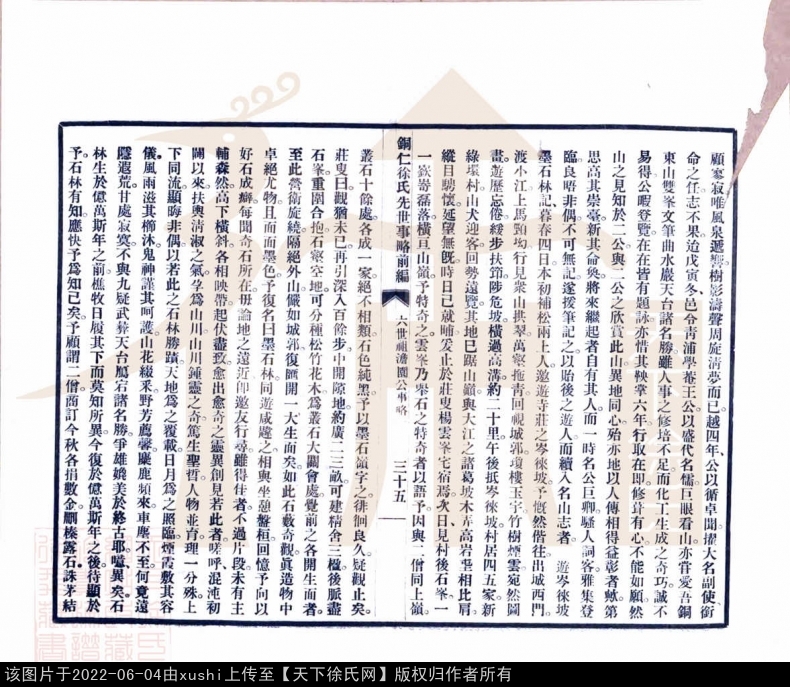 顧寥寂唯風泉遞響樹影濤聲周旋清夢而已越四年公以循卓聞擢大名副使銜
命之任志不果迨戊寅冬邑令青浦學菴王公以盛代名儒巨眼看山亦嘗愛吾銅
東山雙峯文筆曲水巖天台諸名勝雖人事之修培不足而化工生成之奇巧誠不
易得公暇登覽在在皆有題詠亦惜其鞅掌六年行取在即修葺有心不能如願然
山之見知於二公與二公之欣賞此山異地同心殆亦地以人傳相得益彰者歟第
思高其崇臺新其命奐將來繼起者自有其人而一時名公巨卿騷人詞客雅集登
臨良唔非偶不可無記遂援筆記之以貽後之遊人而續入名山志者　遊岑徠坡
墨石林記暮春四日本初補松兩上人邀遊寺莊之岑徠坡予慨然偕往出城西門
渡小江上馬頸坳行見衆山拱翠萬壑拖青回視城郭瓊樓玉宇竹樹煙雲宛然圖
畫遊歷忘倦緩步扶節陟危坡橫過高溝約二十里午後抵岑徠坡村居四五家新
綠環村山犬迎客回勢遠覽其地已踞山嶺與大江之諸葛坡木弄高岩壘相比肩
縱目騁懷延望無旣時日已就晡爰止於莊叟楊雲峯宅宿焉次日見村後石峯一
一嶔嵜磊落橫亘山嶺予特奇之雲峯乃舉石之特奇者以語予因與二僧同上嶺
銅仁徐氏先世事略前編　六世祖澹園公事略　三十五
叢石十餘處各成一家絕不相類石色純黑予以墨石嶺字之徘徊良久疑觀止矣
莊叟曰觀猶未已再引深入百餘步中開隙地約廣二三畝可建精舍三楹後脈盡
石峯重圍合抱石壑空地可分種松竹花木爲叢石大闢會處覺前之各開生面者
至此營衛旋繞隔絕外山儼如城郭復匯開一大生面矣如此石藪奇觀眞造物中
卓絕尤物且而面墨色予復名曰墨石林同遊咸躍之相與坐憩盤桓回憶予向以
好石成癖每聞奇石所在毋論地之遠近卽邀友行尋雖得佳者不過片段未有主
輔森然高下橫斜各相映帶起伏盡致愈出愈奇之靈異創見若此者嗟呼混沌初
闢以來扶輿清淑之氣孕爲山川山川鍾靈之奇篤生聖哲人物並育理一分殊上
下同流顯晦非偶以若此之石林勝蹟天地爲之覆載日月爲之照臨煙霞敷其容
儀風雨滋其櫛沐鬼神謹其呵護山花綴釆野芳薦馨麋鹿頻來車塵不至何竟遠
隱遐荒甘處寂寞不與九疑武彝天台鴈宕諸名勝爭雄嬈美於終古耶噫異矣石
林生於億萬斯年之前樵牧日履其下而莫知所異今復於億萬斯年之後待顯於
予石林有知應快予爲知已矣予顧謂二僧商訂今秋各捐數金劚榛露石誅茅結
该图片于2022-06-04由xushi上传至【天下徐氏网】版权归作者所有